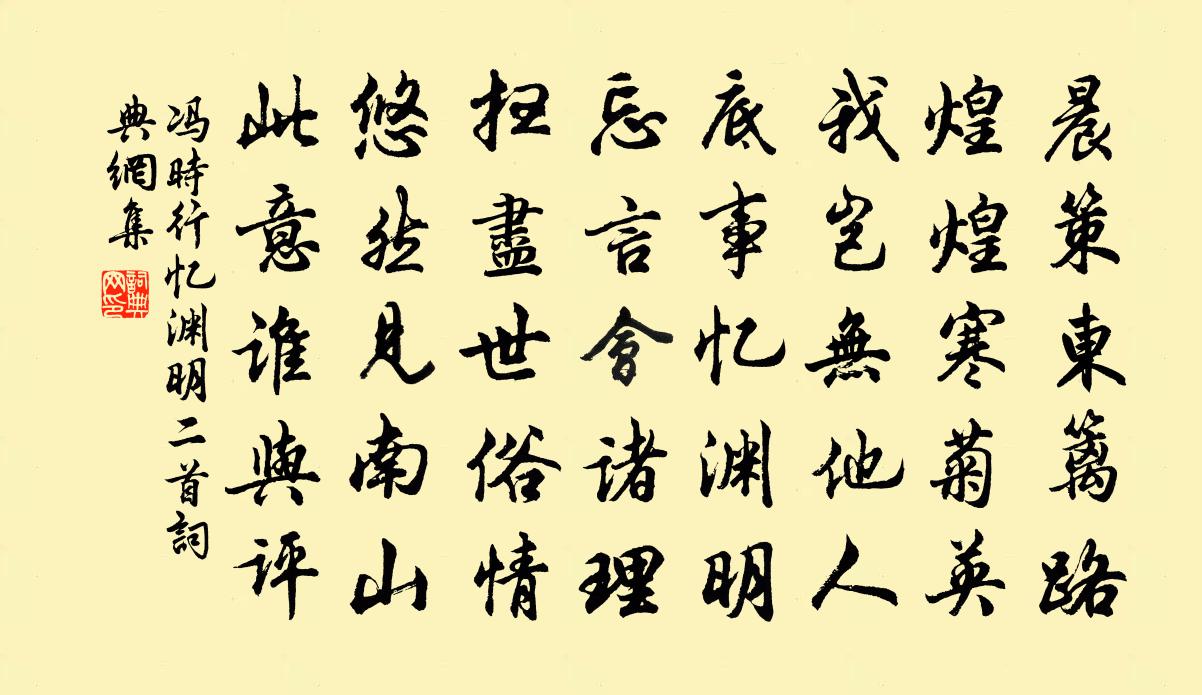 晨策東籬路
煌煌寒菊英
我豈無他人
底事忆渊明
忘言會诸理
扫盡世俗情
悠然見南山
此意谁與评
冯時行忆渊明二首詞
典網集
詞典网印